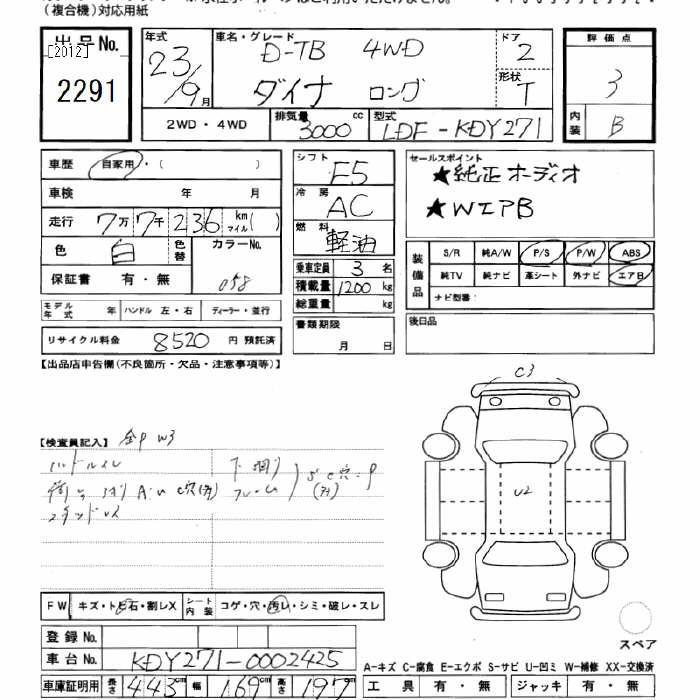 (複合機)対応用紙
出品No. [2012] 2291
年式 23/9月
車名・グレード D-TB 4WD ダイナ ロング
ドア 2
形状 T
評価点 3
内装 B
2WD・4WD 排気量 3000 cc 型式 LDF-KDY271
車歴 自家用・( )
車検 年 月
走行 7万7千236 km マイル( )
色 白 色替 カラーNo. 058
保証書 有・無
シフト F5
冷房 AC
燃料 軽油
乗車定員 3 名
積載量 1200 kg
総重量 kg
セールスポイント
★純正オーディオ
★WエアB
装備品 S/R 純A/W P/S P/W ABS
純TV 純ナビ 革シート 外ナビ エアB
ナビ型番:
モデル年式 年 ハンドル 左・右 ディーラー・並行
書類期限 月 日
後日品
リサイクル料金 8520 円 預託済
【出品店申告欄(不良箇所・欠品・注意事項等)】
C3
【検査員記入】 全P W3
ハンドルスレ
U2
スタッドレス
FW キズ・トビ石・割レX シート内装 コゲ・穴・汚レ・シミ・破レ・スレ
登録No.
車台No. KDY271-0002425
スペア
A-キズ C-腐食 E-エクボ S-サビ U-凹ミ W-補修 XX-交換済
車庫証明用 長さ 443cm 幅 169cm 高さ 197cm
工具 有・無 ジャッキ 有・無